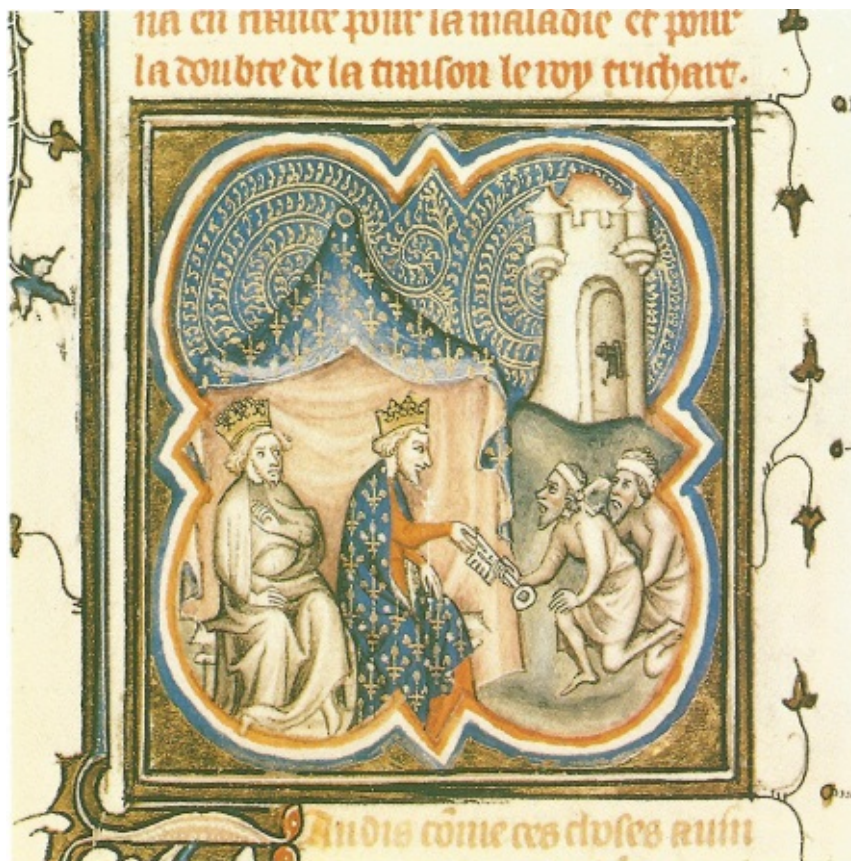 na en chaut pour la maladie et pour
la doubte de la traison le roy trichart.
andis cōme ces choses ainsi